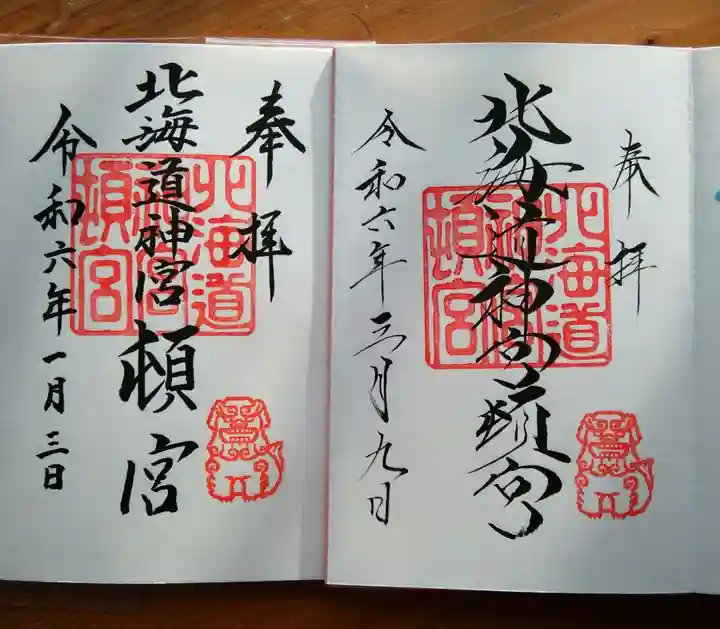 奉拝
北海道神宮頓宮
令和六年三月九日
北海道神宮頓宮
奉拝
北海道神宮頓宮
令和六年一月三日
北海道神宮頓宮